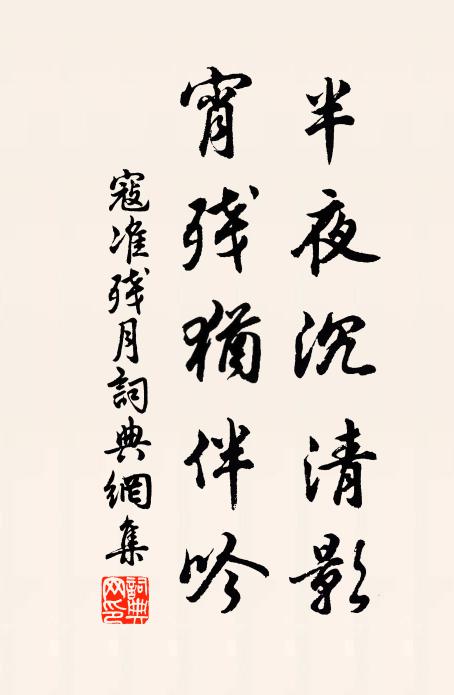 半夜沉清影
宵残猶伴吟
寇准残月詞典網集
詞典网印